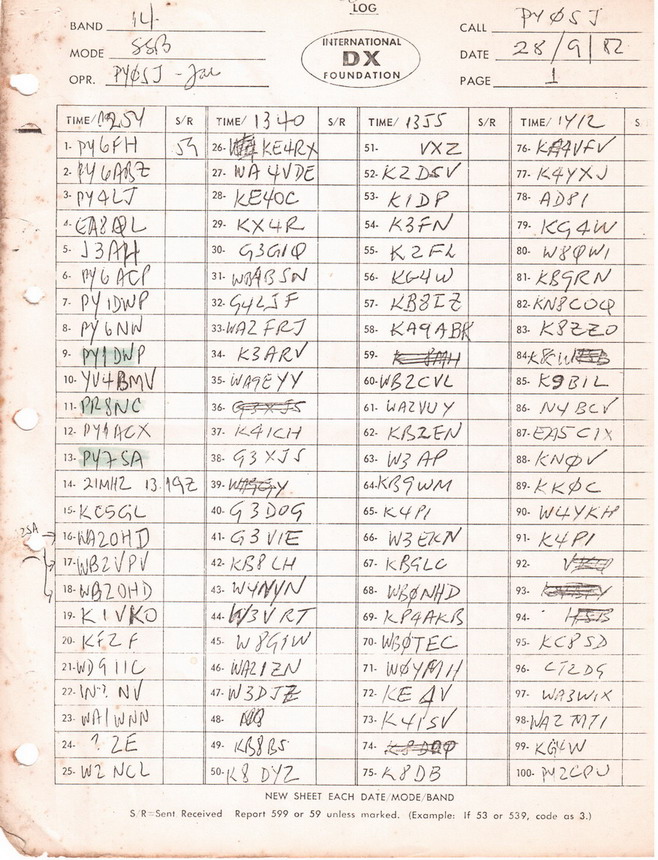 LOG
BAND 14
MODE SSB
OPR. PYØSJ - Joe
INTERNATIONAL
DX
FOUNDATION
CALL PYØSJ
DATE 28/9/82
PAGE 1
TIME/ 1254 S/R TIME/ 1340 S/R TIME/ 1355 S/R TIME/ 1412 S
1- PY6FH 59 26- KE4RX 51- VXZ 76- K4VFV
2- PY6ABZ 27- WA4VDE 52- K2DSV 77- K4YXJ
3- PY4LJ 28- KE4OC 53- K1DP 78- AD8I
4- EA8QL 29- KX4R 54- K3FN 79- KG4W
5- J3AH 30- G3GIQ 55- K2FL 80- W8QWI
6- PY6ACP 31- WB4BSN 56- KG4W 81- KB9RN
7- PY1DWP 32- G4LJF 57- KB8IZ 82- KN8COQ
8- PY6NW 33- WA2FRJ 58- KA9ABK 83- K8ZZO
9- PY1DWP 34- K3ARV 59- 84-
10- YV4BMV 35- WA9EYY 60- WB2CVL 85- K9BIL
11- PR8NC 36- G3XJS 61- WA2VUY 86- N4BCV
12- PY1ACX 37- K4ICH 62- KB2EN 87- EA5CIX
13- PY7SA 38- G3XJS 63- W3AP 88- KNØV
14- 21MHZ 13.19Z 39- 64- KB9WM 89- KKØC
15- KC5GL 40- G3DOG 65- K4PI 90- W4YKH
25A 16- WA2OHD 41- G3VIE 66- W3EKN 91- K4PI
17- WB2VPV 42- KB8LH 67- KB9LC 92-
18- WB2OHD 43- W4NYN 68- WBØNHD 93-
19- K1VKO 44- W3VRT 69- KP4AKB 94-
20- KF2F 45- W8GIW 70- WBØTEC 95- KC8SD
21- WD9IIC 46- WA2IZN 71- WØYMH 96- CT2DG
22- IN? NV 47- W3DJZ 72- KE4V 97- WA3WIX
23- WA1WNN 48- 73- K4ISV 98- WA2MTI
24- ? ZE 49- KB8BS 74- 99- KG4W
25- W2NCL 50- K8DYZ 75- K8DB 100- PY2CPU
NEW SHEET EACH DATE/MODE/BAND
S/R=Sent Received Report 599 or 59 unless marked. (Example: If 53 or 539, code as 3.)